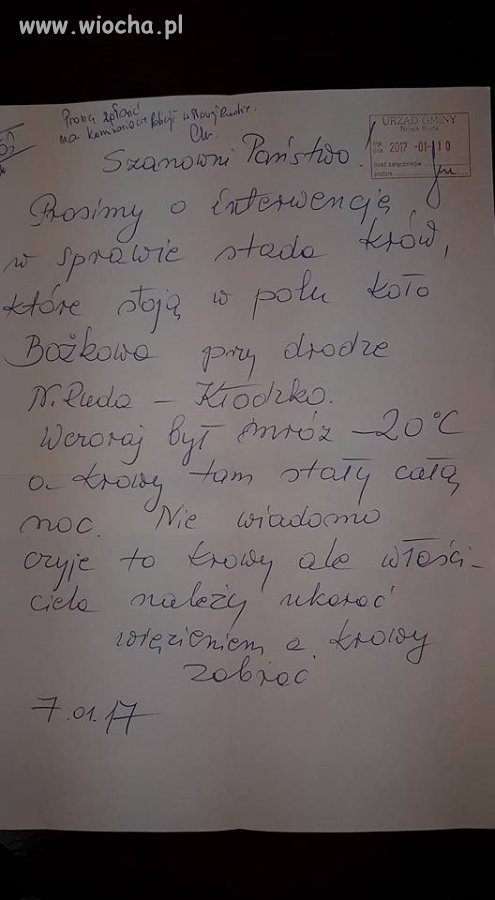 www.wiocha.pl
Proszę zgłosić
na Komisariacie Policji w Nowej Rudzie.
URZĄD GMINY
Nowa Ruda
2017 -01- 10
Ilość załączników
podpis
Szanowni Państwo!
Prosimy o interwencję
w sprawie stada krów,
które stoją w polu koło
Bożkowa przy drodze
N.Ruda – Kłodzko.
Wczoraj był mróz –20°C
a krowy tam stały całą
noc. Nie wiadomo
czyje to krowy ale właści-
ciela należy ukarać
więzieniem a krowy
zabrać
7.01.17